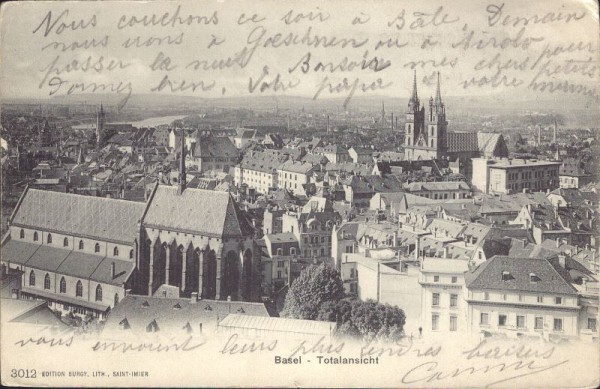 Nous couchons ce soir à Bâle, Demain
nous irons à Gœschnen ou à Airolo pour
passer la nuit. Bonsoir mes chers petits
Dormez bien. Votre papa et votre maman
vous envoient leurs plus tendres baisers
Basel - Totalansicht
3012 EDITION BURGY, LITH., SAINT-IMIER